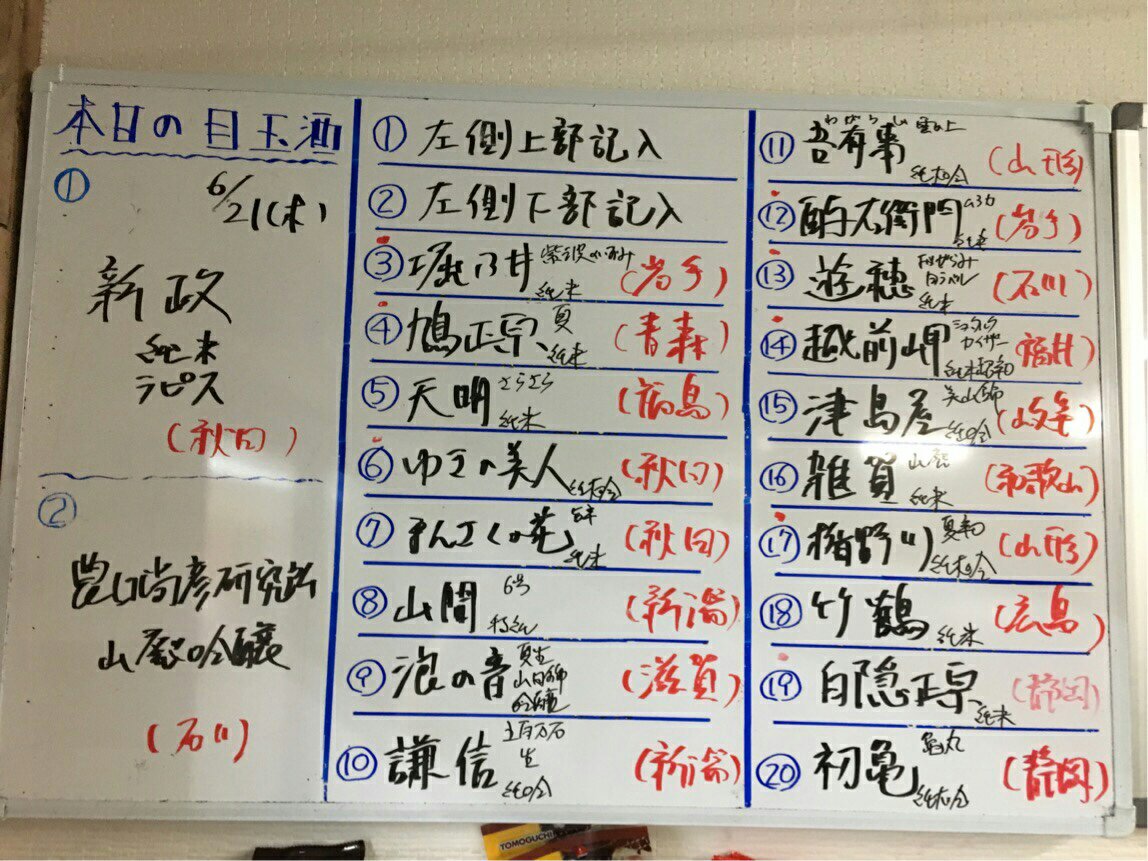 本日の目玉酒
①
6/21(木)
新政
純米
ラピス
(秋田)
②
農口尚彦研究所
山廃吟醸
(石川)
① 左側上部記入
② 左側下部記入
③ 堀の井 純米 (岩手)
④ 鳩正宗 夏 純米 (青森)
⑤ 天明 さらさら 純米 (福島)
⑥ ゆきの美人 純吟 (秋田)
⑦ まんさくの花 純米 (秋田)
⑧ 山間 6号 特純 (新潟)
⑨ 浪の音 夏生 山田錦 吟醸 (滋賀)
⑩ 謙信 五百万石 生 純吟 (新潟)
⑪ 吾有事 雲の上 純吟 (山形)
⑫ 酉与右衛門 (岩手)
⑬ 遊穂 白ラベル 純米 (石川)
⑭ 越前岬 (福井)
⑮ 津島屋 美山錦 純吟 (岐阜)
⑯ 雑賀 山廃 純米 (和歌山)
⑰ 楯野川 純吟 (山形)
⑱ 竹鶴 純米 (広島)
⑲ 白隠正宗 純米 (静岡)
⑳ 初亀 亀丸 純吟 (静岡)
TOMOGUCHI